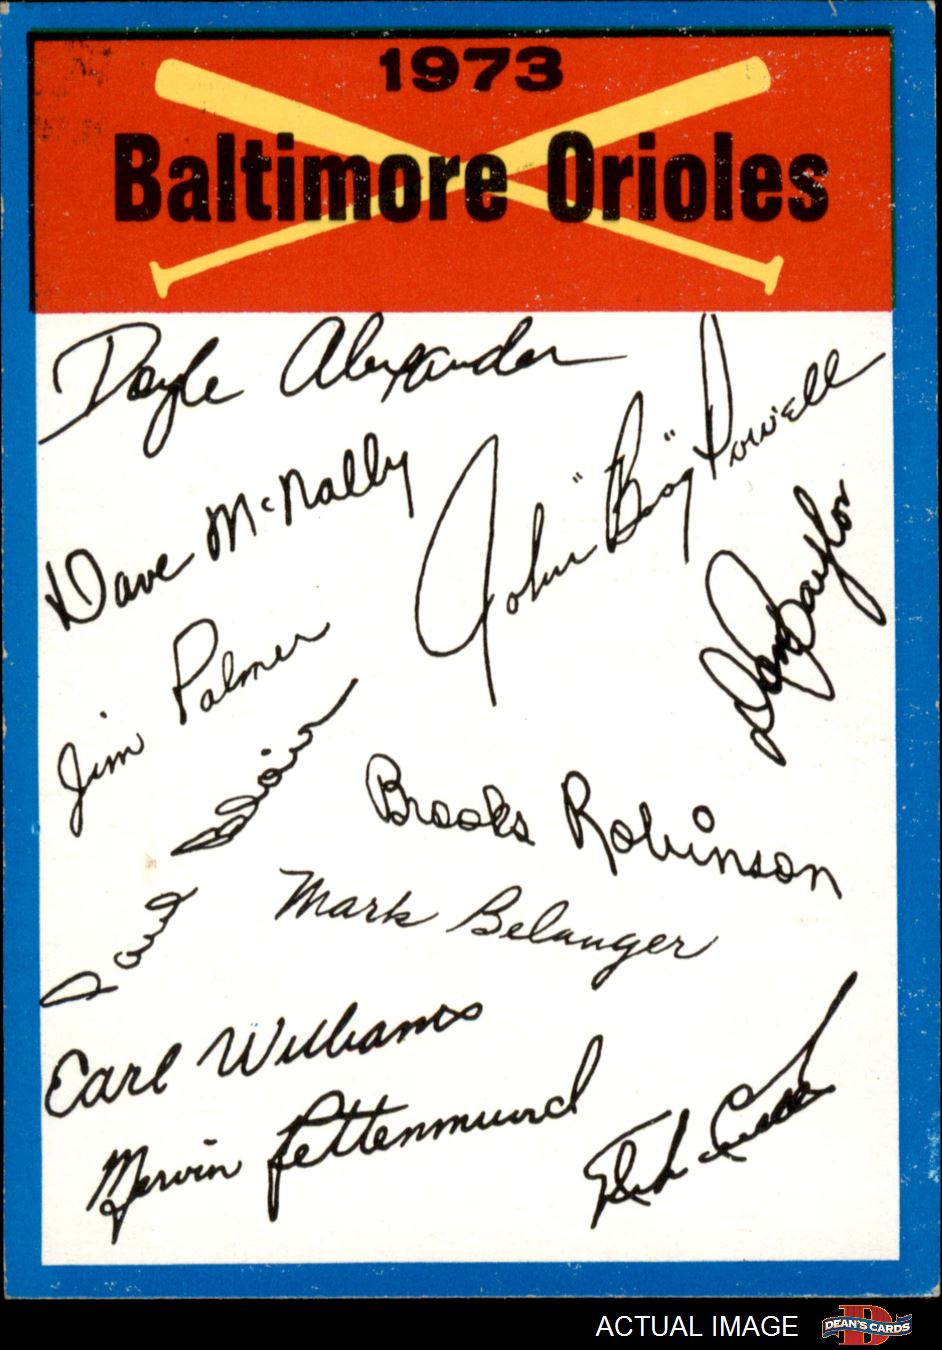 1973
Baltimore Orioles
Doyle Alexander
John "Boog" Powell
Dave McNally
Don Baylor
Jim Palmer
Paul Blair
Brooks Robinson
Mark Belanger
Earl Williams
Mervin Rettenmund
ACTUAL IMAGE
DEAN'S CARDS